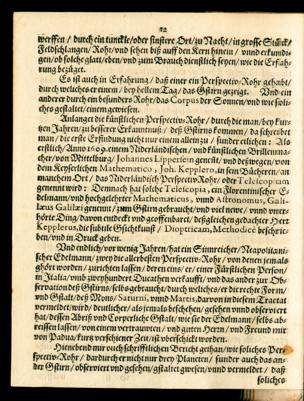 22
werffen / durch ein tunckle / oder finstere Ort / zu Nacht / in grosse Stuck /
Feldschlangen / Rohr / vnd sehen biß auff den Kern hinein / vnnd erkundi-
gen / ob solche glatt / eben / vnd zum Brauch dienstlich seyen / wie die Erfah-
rung bezüget.
Es ist auch in Erfahrung / daß einer ein Perspectiv-Rohr gehabt /
durch welches er einem / bey hellem Tag / das Gstirn gezeigt. Vnd ein
anderer durch ein besunders Rohr / das Corpus der Sonnen / vnd wie soli-
ches gestaltet / einem gewesen.
Anlanget die künstlichen Perspectiv-Rohr / durch die man / bey kur-
tzen Jahren / zu besserer Erkanntnuß / deß Gstirns kommen / da schreibet
man / die erste Erfindung nicht nur einem allein zu / sunder etlichen: Als
erstlich / Anno 1609. einem Niderländischen / vnd künstlichen Brillenma-
cher / von Mittelburg / Johannes Lippersein genent / vnd deßwegen / von
dem Keyserlichen Mathematico, Joh. Kepplero, in sein Büchern / an
manchem Ort / das Niderländisch Perspectiv Rohr / oder Telescopium
genennt wird: Demnach hat solche Telescopia, ein Florentinischer E-
delmann / vnd hochgelehrter Mathematicus, vnnd Astronomus, Gali-
læus Galilæi genennt / zum Gstirn gebraucht / vnd viel newe / vnnd vner-
hörte Ding / davon endeckt vnd geoffenbaret / deßgleichen gedachter Herr
Kepplerus, die subtile Gsichtkunst / Dioptricam, Methodicè beschrie-
ben / vnd in Druck geben.
Vnd endlich / vor wenig Jahren / hat ein Sinnreicher / Neapolitani-
scher Edelmann / zwey die allerbesten Perspectiv-Rohr / von denen jemals
ghört worden / zurichten lassen / deren eins / er / einer Fürstlichen Person /
in Italia / vmb zweyhundert Ducathen verkaufft / vnd das ander zur Ob-
servation deß Gstirns / selbs gebrauch / durch welches / er die rechte Form /
vnd Gstalt / deß Mons / Saturni, vnnd Martis, darvon in diesem Tractat
vermeldet wird / deutlicher / als jemals beschehen / gesehen vnnd observiert
hat / dessen Abriß vnd Corperliche Gstalt / wie sie der Edelmann / selbs ab-
reissen lassen / von einem vertrauwten / vnd guten Herrn / vnd Freund mir
von Padua / kurtz verschiener Zeit / ist vberschickt worden.
Hienebend mir auch schrifftlichen Bericht gethan / wie soliches Per-
spectiv-Rohr / dardurch er nicht nur drey Planeten / sunder auch das an-
der Gstirn / observiert vnd gesehen / gstaltet gwesen / vnnd vermeldet / daß
soliches